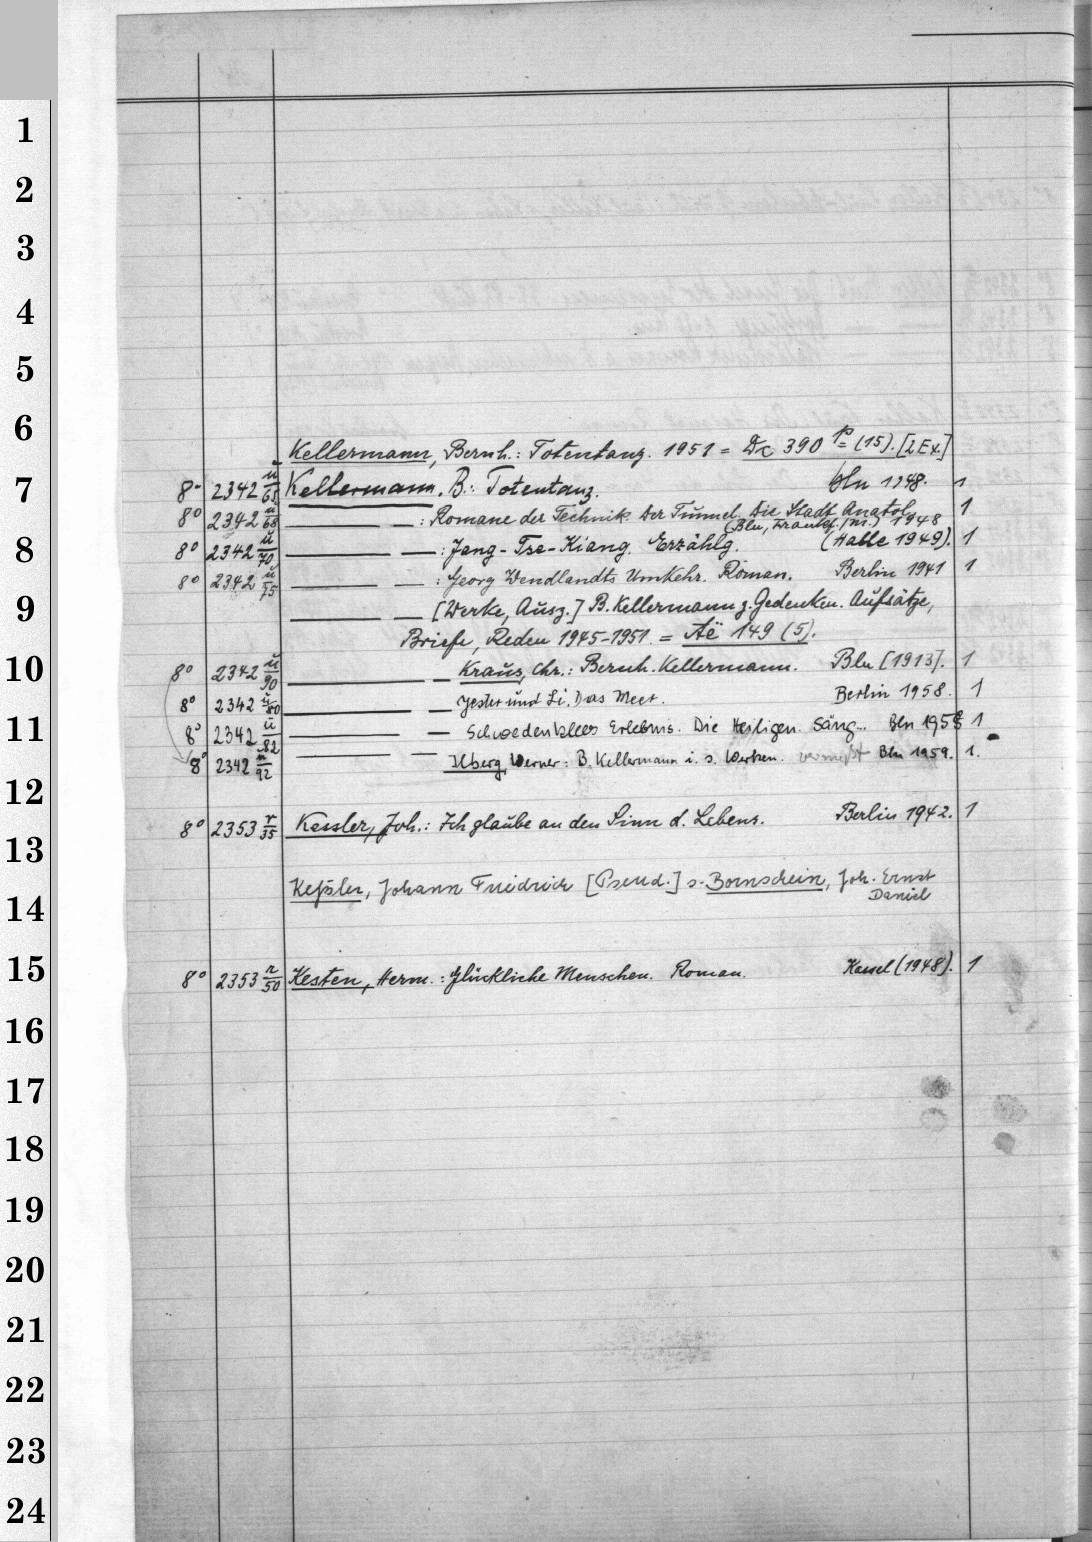 1
2
3
4
5
6
Kellermann, Bernh.: Totentanz. 1951 = Dc 390 p= (15). [2 Ex.]
7
8° 2342 ü/65 Kellermann, B.: Totentanz. Bln 1948. 1
8° 2342 ü/68 — — : Romane der Technik. Der Tunnel. Die Stadt Anatol. 1
(Bln, Frankf./M.) 1948
8
8° 2342 ü/70 — — : Jang-Tse-Kiang. Erzählg. (Halle 1949). 1
8° 2342 ü/75 — — : Georg Wendlandts Umkehr. Roman. Berlin 1941 1
9
— — [Werke, Ausz.] B. Kellermann z. Gedenken. Aufsätze,
Briefe, Reden 1945-1951 = Aë 149 (5).
10
8° 2342 ü/90 — — Kraus, Chr.: Bernh. Kellermann. Bln [1913]. 1
8° 2342 ü/80 — — Jester und Li. Das Meer. Berlin 1958. 1
11
8° 2342 ü/82 — — Schwedenklees Erlebnis. Die Heiligen. Säng.. Bln 1958 1
8° 2342 ü/92 — — Ilberg, Werner: B. Kellermann i. s. Werken. vermißt Bln 1959. 1.
12
8° 2353 r/35 Kessler, Joh.: Ich glaube an den Sinn d. Lebens. Berlin 1942. 1
13
Keßler, Johann Friedrich [Pseud.] s. Bornschein, Joh. Ernst
Daniel
14
15
8° 2353 r/50 Kesten, Herm.: Glückliche Menschen. Roman. Kassel (1948). 1
16
17
18
19
20
21
22
23
24